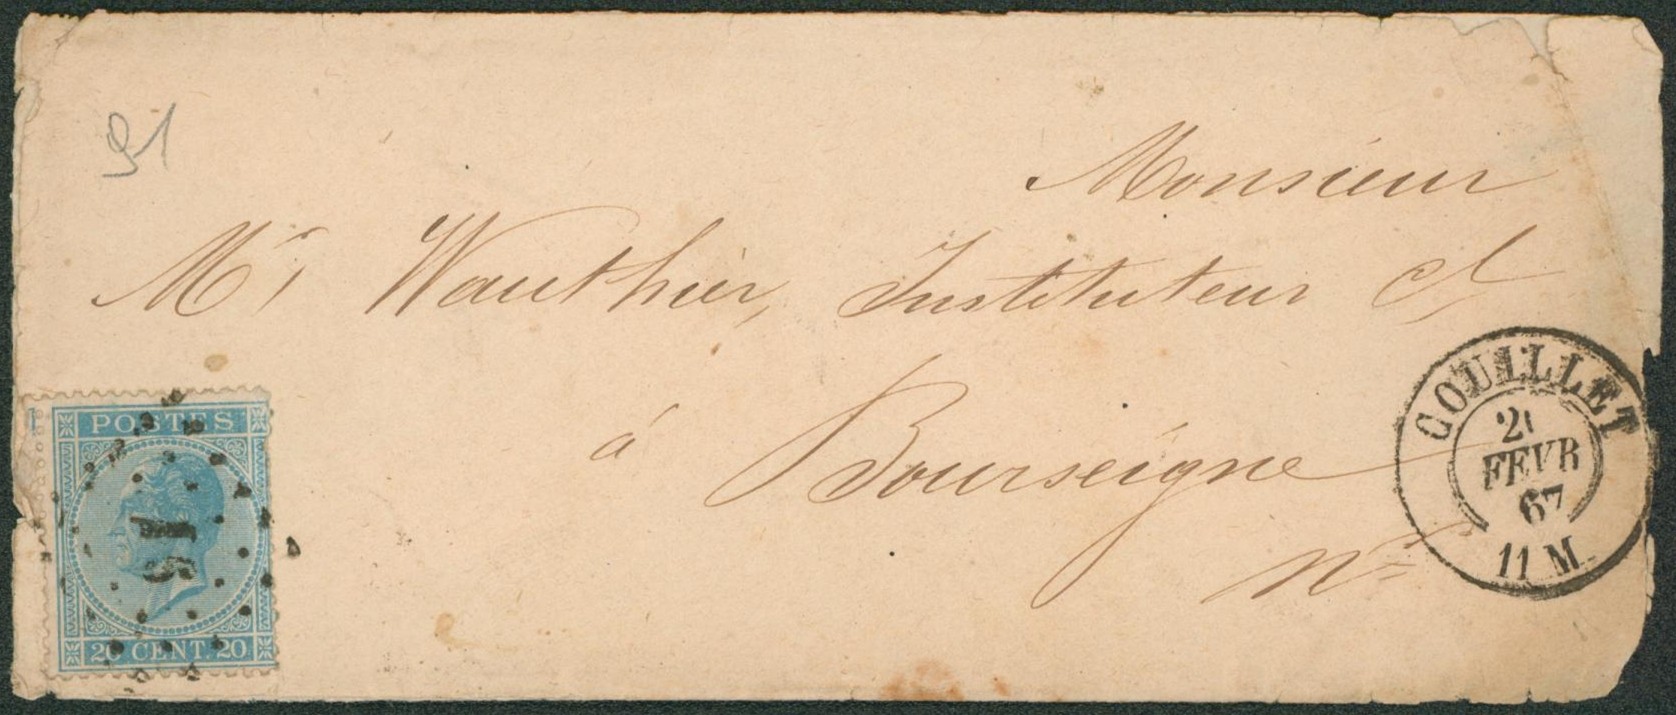 91
Monsieur
Mr Wauthier, Instituteur
à Bourseigne
POSTES
91
20 CENT. 20
COUILLET
FEVR
67
11 M